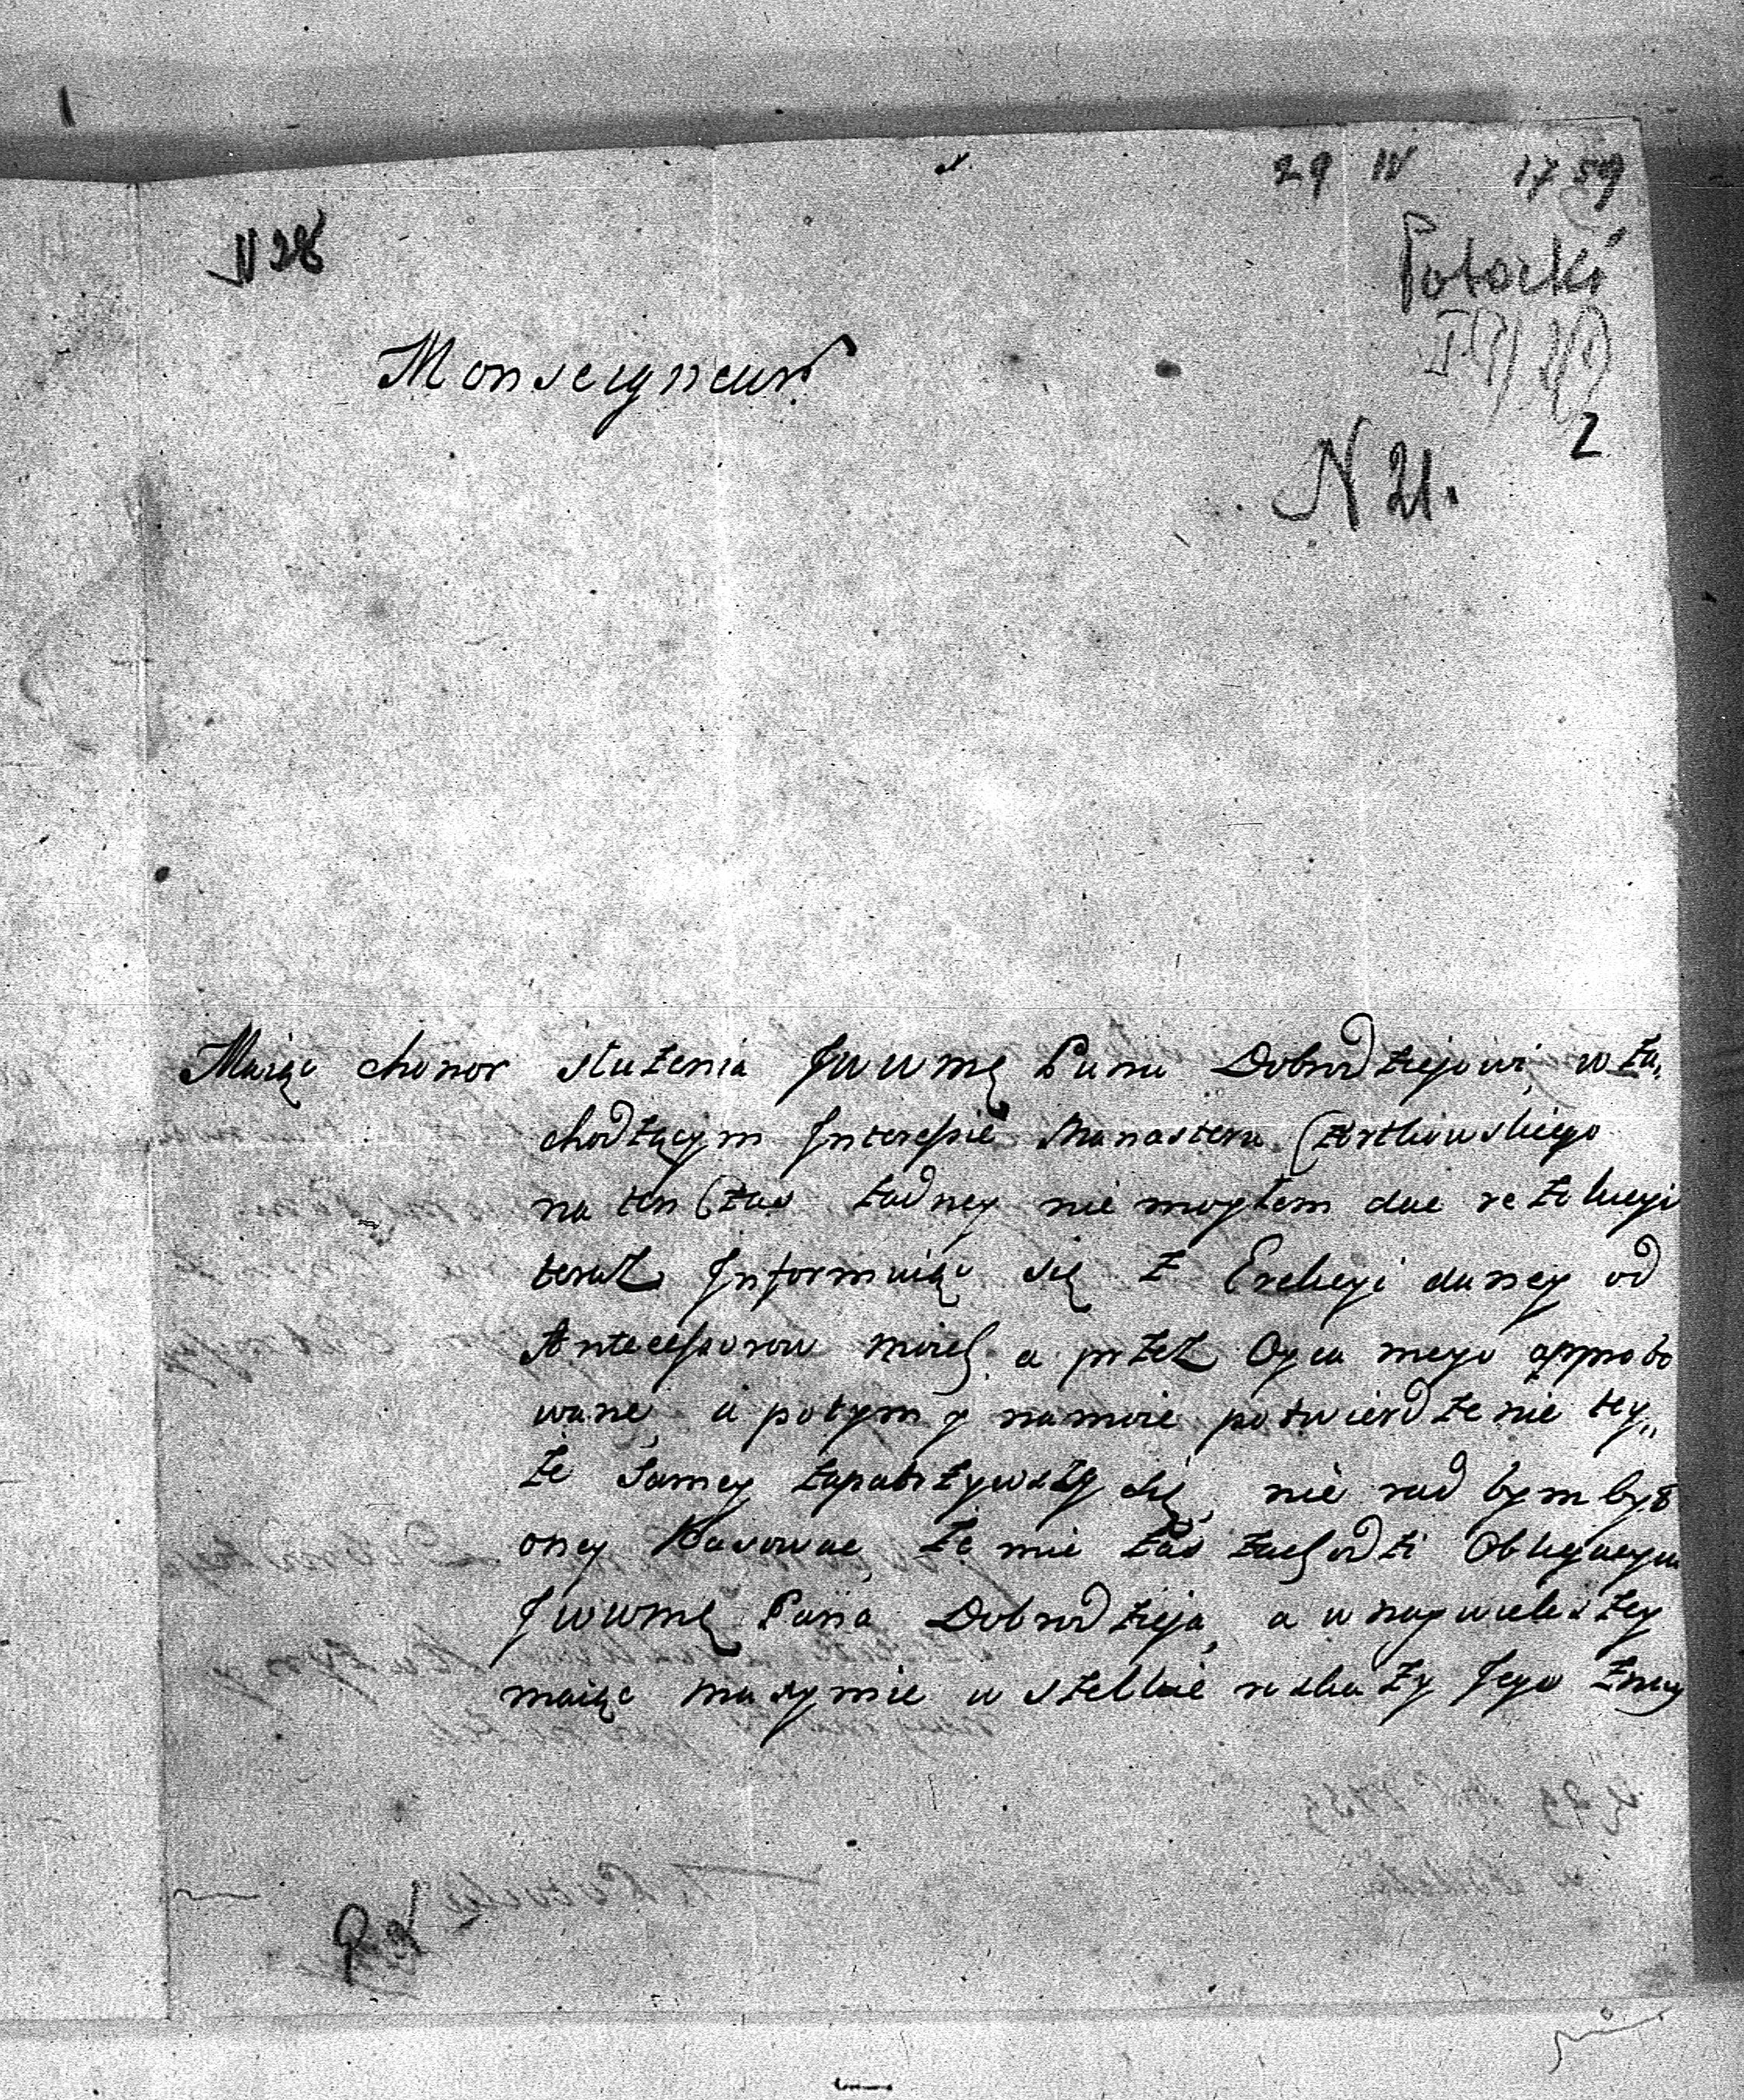 29 IV 1759
N 28
Potocki
Monseigneur
2
N 21.
Maiąc chonor służenia JWWMę Panu Dobrodziejowi, w za,
chodzącym Interessie Manasteru Czortkowskiego
na ten Czas żadney nie mogłem dac rezolucyi
teraz Informuiąc się z Erekcyi daney od
Antecessorow moich a przez Oyca mego approbo
wane, a potym y na moie potwierdzenie tey„
że samey zapatrzywszy się, nie rad bym był
oney Kasowac, że mie zas zachodzi Obligacya
JWWMę Pana Dobrodzieja, a w naywiekszey
maiąc maxymie wszelkie rozkazy Jego